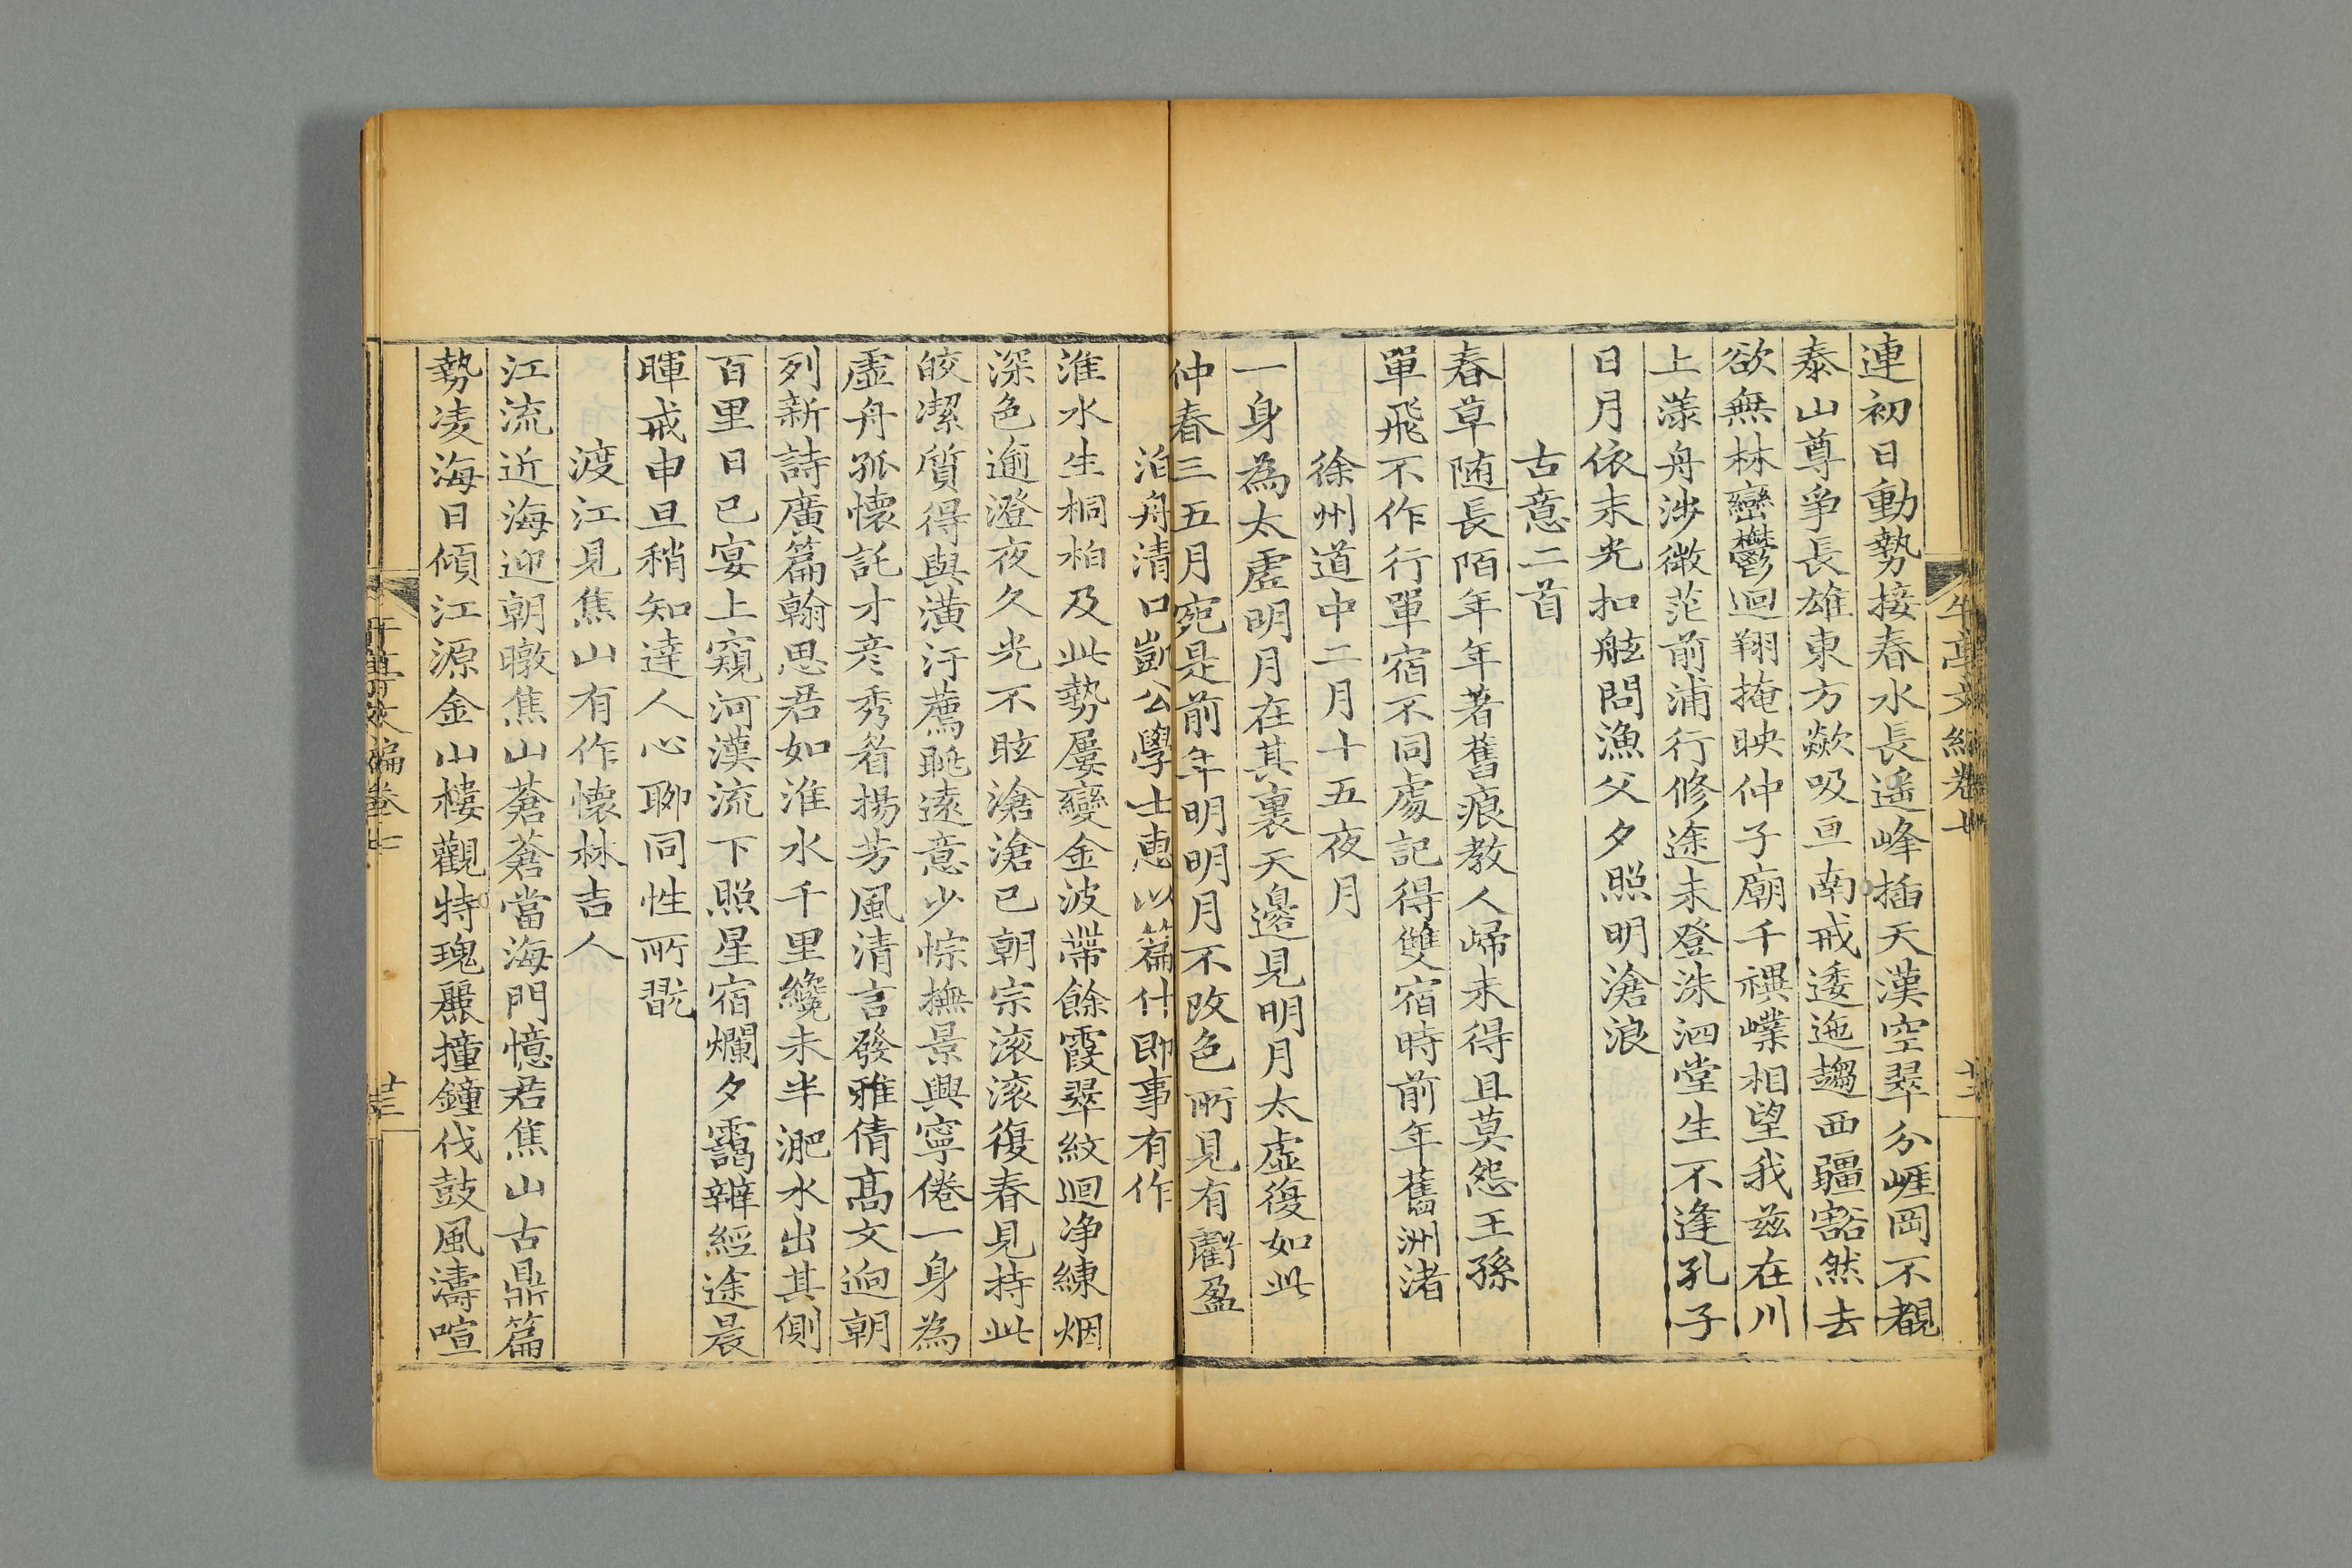 連初日動勢接春水長遥峰插天漢空翠分崕岡不覩
泰山尊爭長雄東方歘吸亘南戒逶迤趨西疆豁然去
欲無林巒鬱迴翔掩映仲子廟千禩嶫相望我茲在川
上漾舟涉微茫前浦行修途未登洙泗堂生不逢孔子
日月依末光扣舷問漁父夕照明滄浪
古意二首
春草随長陌年年著舊痕教人歸未得且莫怨王孫
單飛不作行單宿不同處記得雙宿時前年舊洲渚
徐州道中二月十五夜月
一身為太虛明月在其裏天邊見明月太虛復如此
仲春三五月宛是前年明明月不改色所見有虧盈
泊舟清口凱公學士惠以篇什即事有作
淮水生桐柏及此勢屢變金波帶餘霞翠紋迴净練烟
深色逾澄夜久光不眩滄滄已朝宗滚滚復春見持此
皎潔質得與潢汙薦眺遠意少悰撫景興寧倦一身為
虛舟孤懷託才彥秀眉揚芳風清言發雅倩高文迥朝
列新詩廣篇翰思君如淮水千里纔未半淝水出其側
百里日已宴上窺河漢流下照星宿爛夕靄辨經途晨
暉戒申旦稍知達人心聊同性所翫
渡江見焦山有作懷林吉人
江流近海迎朝暾焦山蒼蒼當海門憶君焦山古鼎篇
勢凌海日傾江源金山樓觀特瑰麗撞鐘伐鼓風濤喧